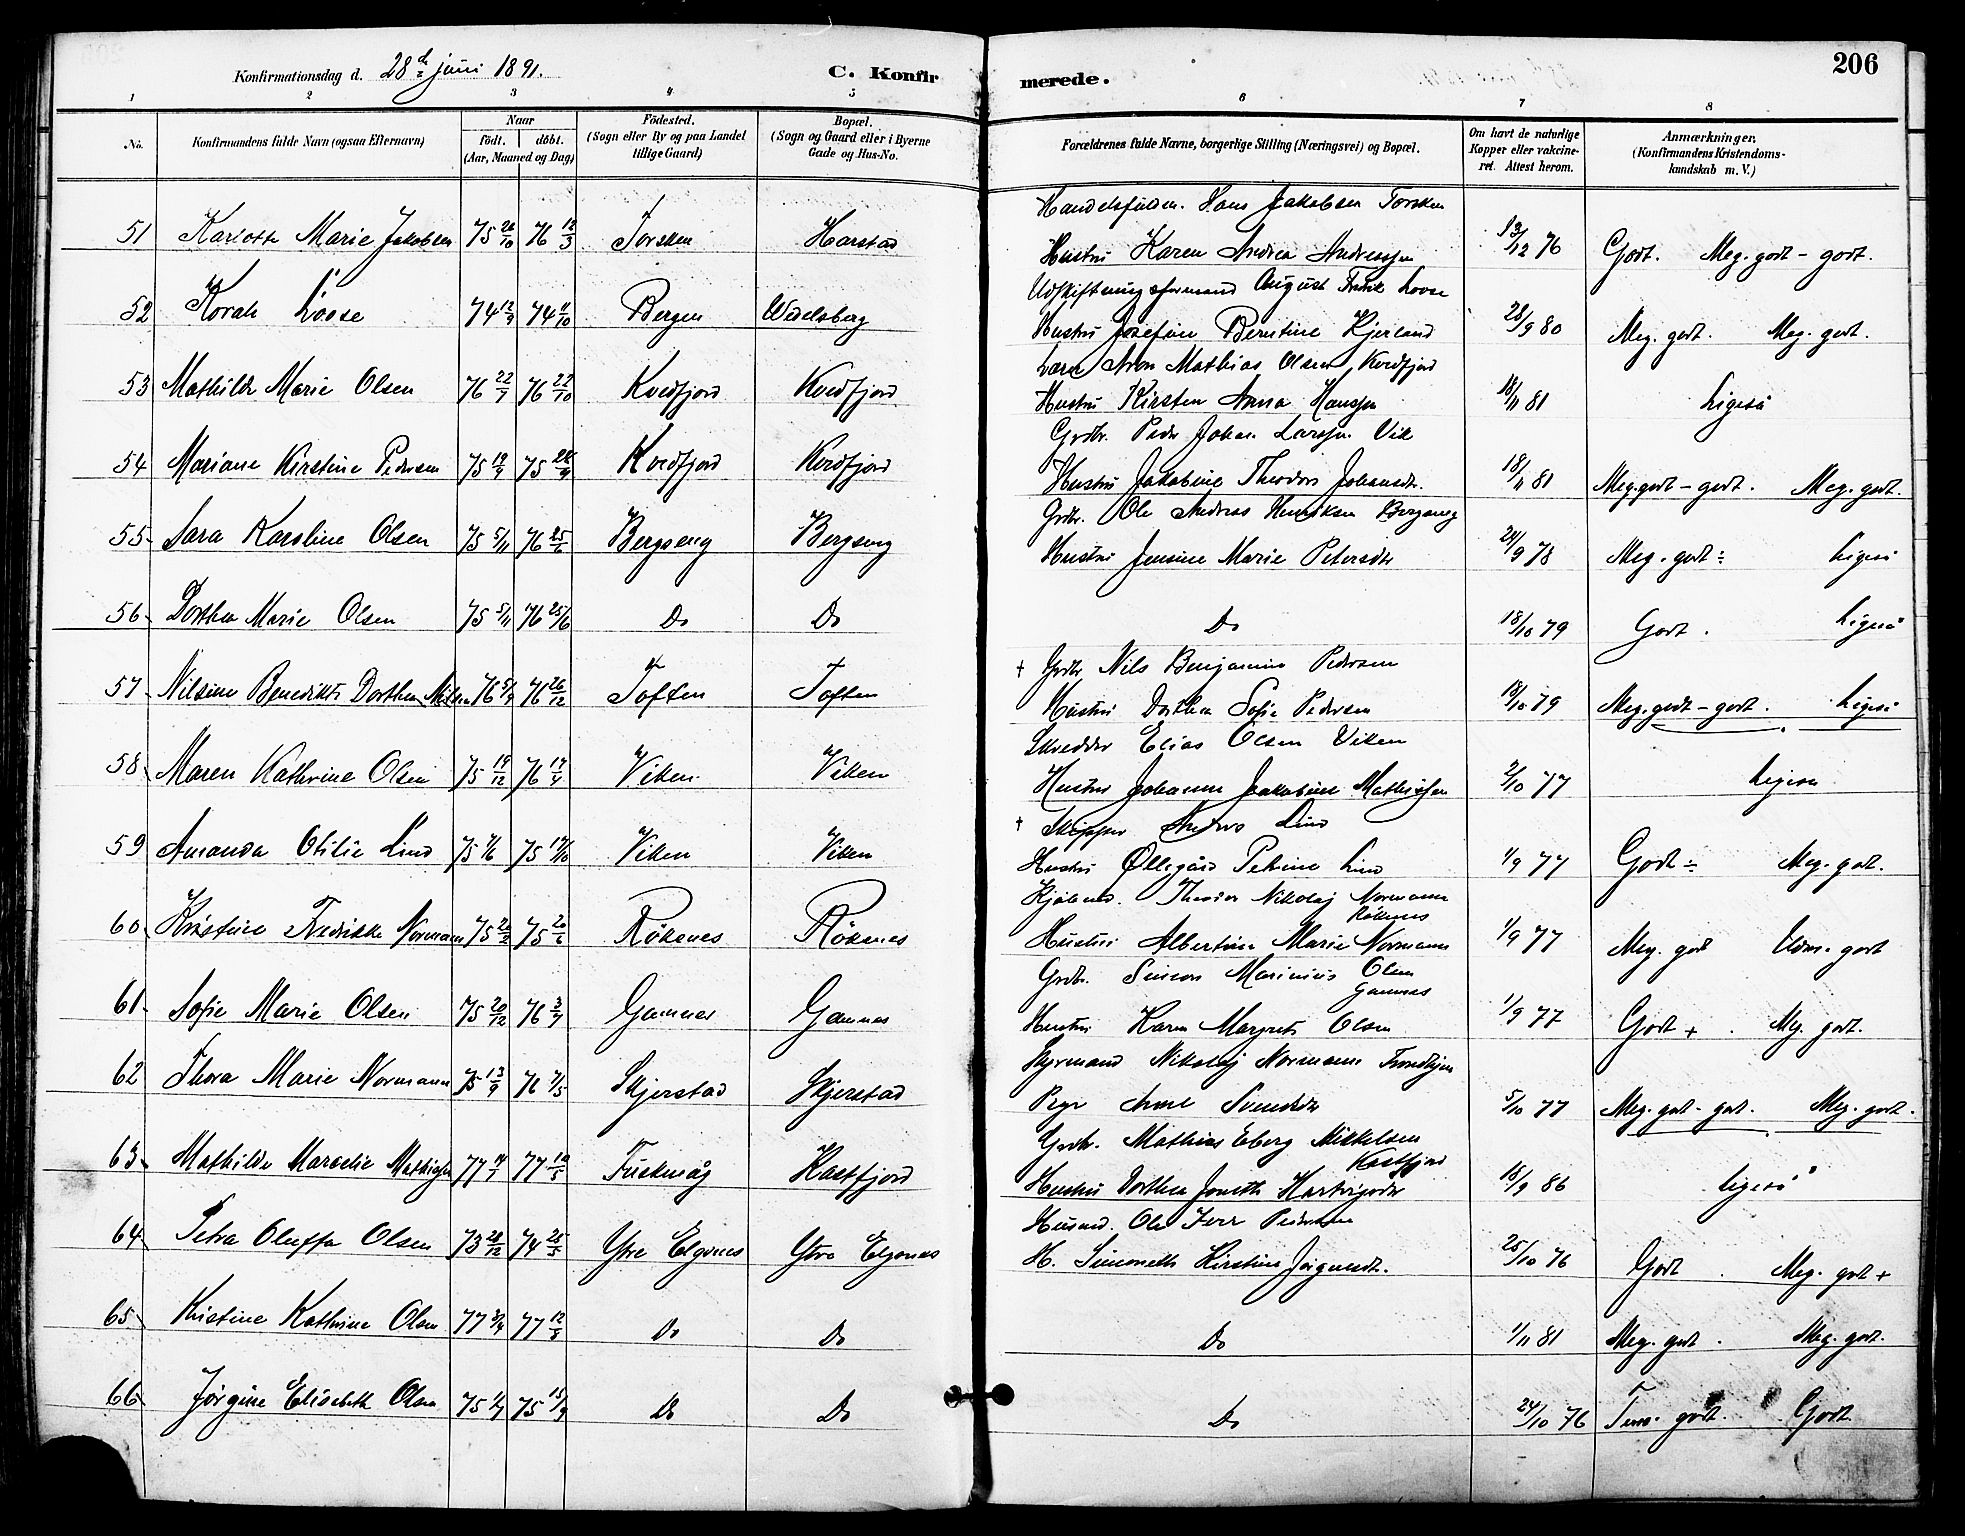 206
Konfirmationsdag d. 28de juni 1891. C. Konfirmerede.
1 2 3 4 5 6 7 8
No. Konfirmandens fulde Navn (ogsaa Efternavn) Naar Födt. döbt. (Aar, Maaned og Dag) Födested. (Sogn eller By og paa Landet tillige Gaard) Bopæl. (Sogn og Gaard eller i Byerne Gade og Hus-No. Forældrenes fulde Navne, borgerlige Stilling (Næringsvei) og Bopæl. Om havt de naturlige Kopper eller vakcineret. Attest herom. Anmærkninger. (Konfirmandens Kristendomskundskab m. V.)
Hans Jakobsen Torsken
51 Karlotte Marie Jakobsen 75 20/10 76 12/3 Torsken Harstad Hustru Karen Andrea Andreassen 13/12 76 Godt. Meg. godt - godt.
Udskiftningsformand August Fredrik Lovse
52 Korah Lovse 74 12/9 74 11/10 Bergen Wedelsberg Hustru Josefine Berntine Kjerland 28/9 80 Meg. godt. Meg. godt.
Aron Mathias Olsen, Kvedfjord
53 Mathilde Marie Olsen 76 22/7 76 22/10 Kvedfjord Kvedfjord Hustru Kirsten Anna Hansen 18/11 81 Ligeså
Grdbr. Peder Johan Larssen Vik
54 Mariane Kirstine Pedersen 75 19/9 75 28/9 Kvedfjord Kvedfjord Hustru Jakobine Theodora Johansdtr. 18/11 81 Meg. godt - godt. Meg. godt.
Grdbr. Ole Andreas Henriksen Bergseng
55 Sara Karoline Olsen 75 5/11 76 25/6 Bergseng Bergseng Hustru Jensine Marie Petersdtr 24/9 78 Meg. godt ÷ Ligeså
56 Dorthea Marie Olsen 75 5/11 76 25/6 Do Do Do 18/10 79 Godt. Ligeså
† Grdbr Nils Benjamin Pedersen
57 Nilsine Benedikte Dorthea Nilsen 76 5/9 76 26/12 Toften Toften Hustru Dorthea Sofie Pedersen 18/10 79 Meg. godt - godt. Ligeså
Skredder Elias Olsen Viken
58 Maren Kathrine Olsen 75 19/12 76 17/4 Viken Viken Hustru Johanna Jakobine Mathissen 2/10 77 Ligeså
† Skipper Anders Lind
59 Amanda Otilie Lind 75 7/6 75 17/10 Viken Viken Hustru Øllegård Petrine Lind 1/9 77 Godt ÷ Meg. godt.
Theodor Nikolaj Normann
Røkenes
60 Kristine Fredrikke Normann 75 20/2 75 20/6 Røkenes Røkenes Hustru Albertine Marie Normann 1/9 77 Meg. godt Udm. godt
Grdbr. Simon Marinius Olsen
Gamnes
61 Sofie Marie Olsen 75 20/12 76 3/7 Gamnes Gamnes Hustru Karen Margrete Olsen 1/9 77 Godt + . Meg. godt.
Styrmand Nikolaj Normann Trondhjem
62 Thora Marie Normann 75 13/9 76 7/5 Skjerstad Skjerstad Pige Svendsdtr 5/10 77 Meg. godt - godt. Meg. godt.
Grdbr. Mathias Eberg Mikkelsen
Kastfjord
63 Mathilde Marselie Mathisen 77 14/1 77 10/5 Kastfjord Hustru Dorthea Joneth Hartvigsdtr 18/9 86 Ligeså
Husmd. Ole Iver Pedersen
64 Petra Oluffa Olsen 73 28/12 74 25/5 Ytre Elgsnes Ytre Elgsnes H. Simoneth Kirstine Jørgensdtr. 25/10 76 Godt. Meg. godt +
65 Kristine Kathrine Olsen 77 3/4 77 12/8 Do Do Do 1/11 81 Meg. godt. Meg. godt.
66 Jørgine Elisabeth Olsen 75 1/7 75 15/9 Do Do Do 24/10 76 Tem. godt. Godt